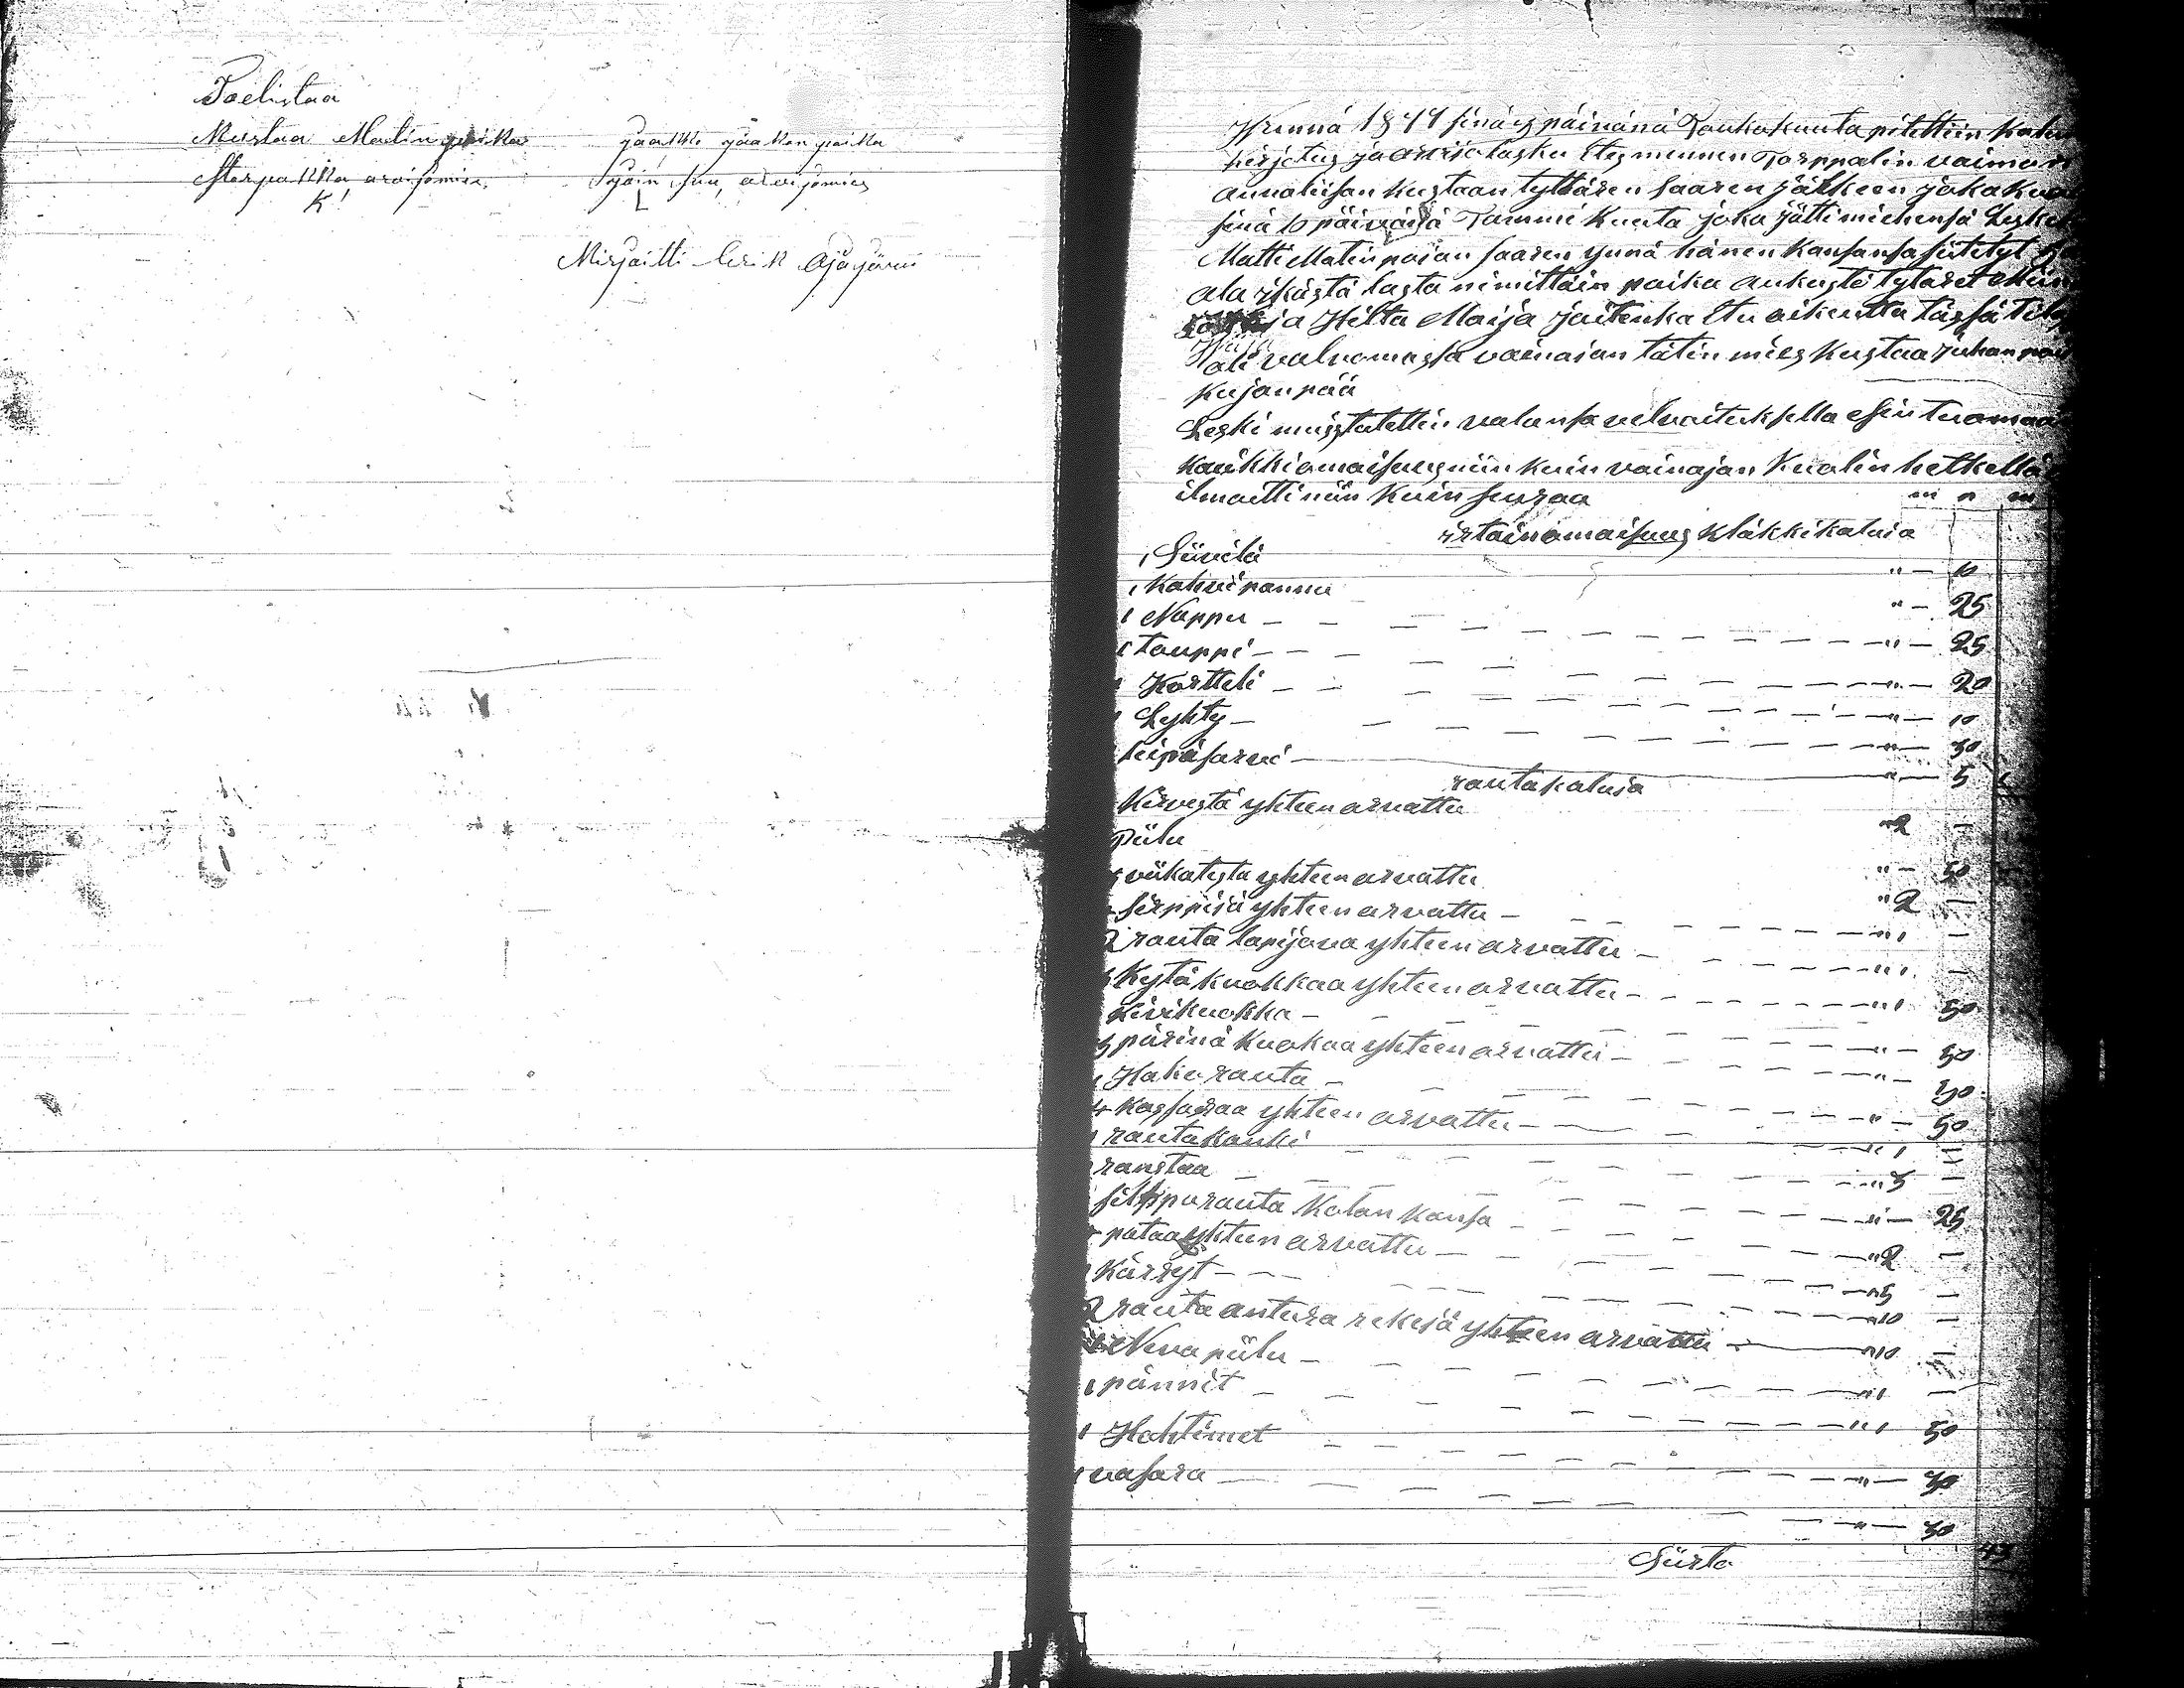 Poelistaa
Kustaa Matinpoika
Storpakka arvijomies
K!
Jaakko Jaakonpoika
Sjöin Suu, arvijomies
L
Kirjoitti Erik Ojajärvi
Wunna 1877 sinä päivänä Toukokuuta pitettiin Kalu
kirjotus ja arvio lasku Etesmennen Torpparin vaimon
annaliisan kustaan tyttären Saaren jälkeen joka Kuo
sinä 10 päivänä Tammi Kuuta joka jätti miehensä Leske
Matti Matinpojan Saaren ynnä hänen Kansansa siitetyt
ala ikästä lasta nimittäin poika aukusti tytäret Miin
ja Hilta Maija joitenka Etu oikeutta tässä tila
oli valvomassa vainajan tätin mies Kustaa Juhanpoi
Kujanpää
Leski muistutettiin valansa velvoituksella esiin tuomaa
kaikki omaisuus niin kuin vainajan Kuolin hetkellä
ilmoitti niin kuin seuraa
irtain omaisuus kläkkikaluja
1 Siivilä " — 10
1 Kahvipannu " — 25
1 Nappu " — 25
1 touppi " — 20
1 Kortteli " — 10
1 Lyhty " — 50
leipäsarvi " — 5
rautakaluja
Kirvestä yhteen arvattu " 2 —
Piilu " — 50
viikatesta yhteen arvattu " 2 —
sirppiä yhteen arvattu " 1 —
2 rauta lapijova yhteen arvattu " 1 —
Kytä kuokkaa yhteen arvattu " 1 50
Livikuokka " — 50
3 pärinä Kuokaa yhteen arvattu " — 50
1 Hako rauta " — 50
4 kassaraa yhteen arvattu " 1 —
1 rautakanki " 3 —
ranstaa " — 25
silpporauta kolan kansa " 2 —
pataa yhteen arvattu " 5 —
1 Kärryt " 10 —
2 rauta antura rekejä yhteen arvattu " 10 —
Neva piilu " 1 —
1 pännit " 1 50
1 Hohtimet " — 40
1 vasara " — 30
Siirto 43